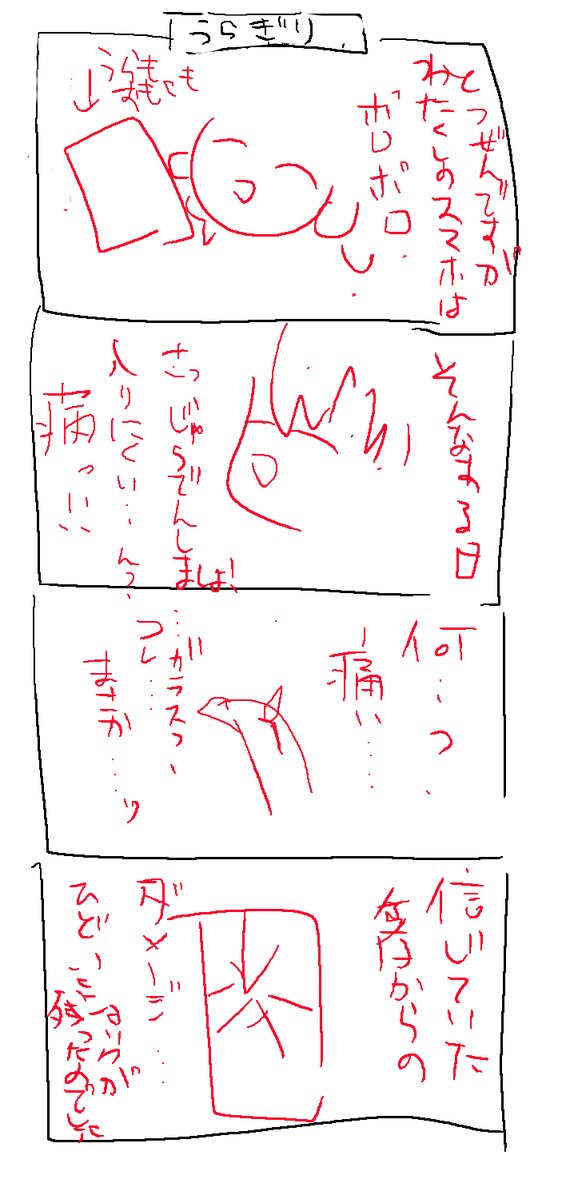 うらぎり
とつぜんですが
わたくしのスマホは
ボロボロ
うらも
おもても
そんなある日
さつじゅうでんしましょ!
入りにくい…んっ、
痛っ!!
何…っ
痛い……
…ガラスっ、
つし…
まさか…ッ
信じていた
からの
ダメージ…
ひどい
が
残ったのでした